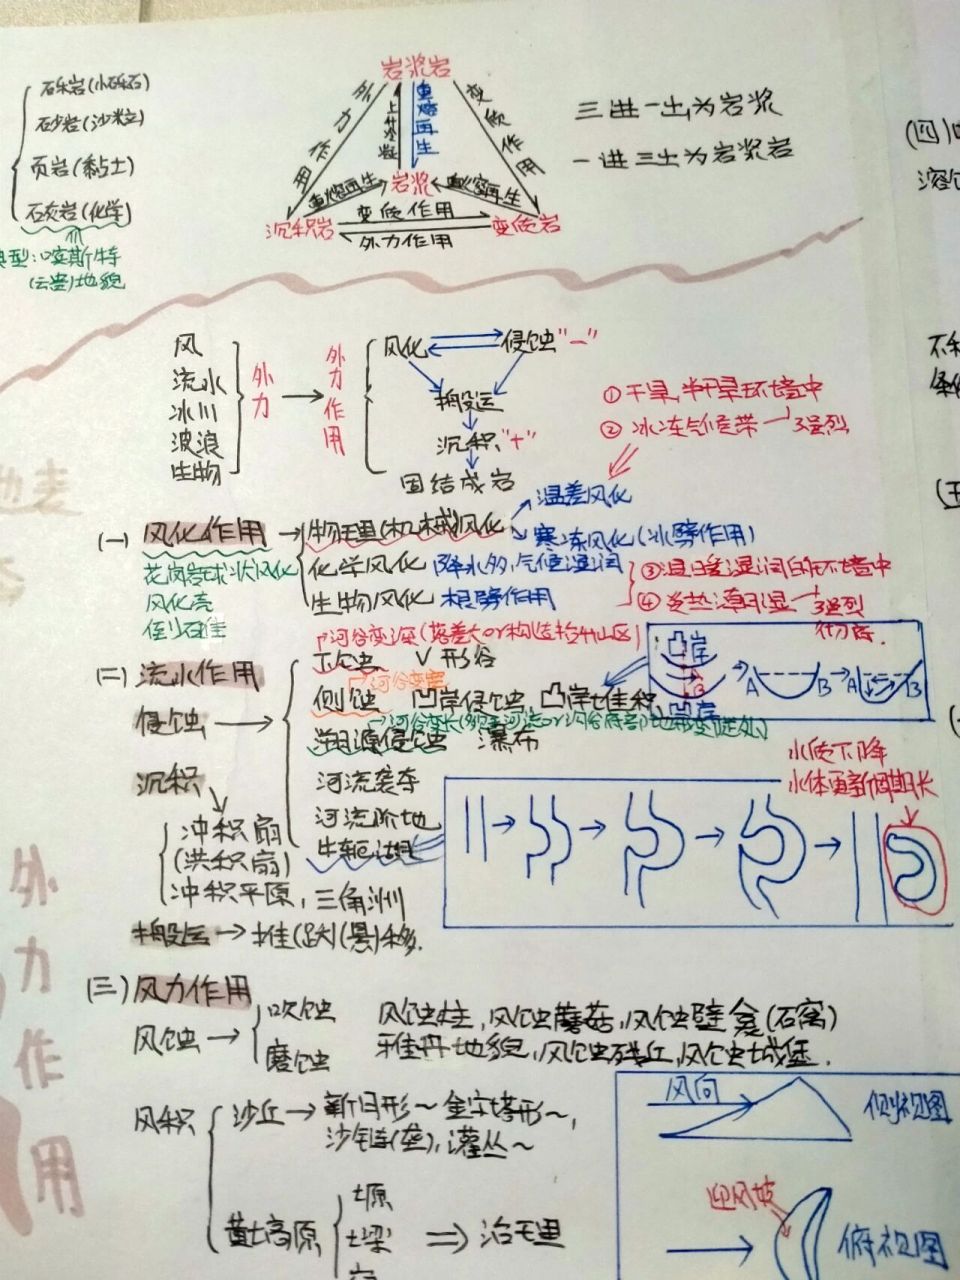 砾岩(小砾石)
砂岩(沙粒)
页岩(黏土)
石灰岩(化学)
典型:喀斯特
(云贵)地貌
岩浆岩
外力作用
上升冷凝
重熔再生
变质作用
重熔再生
岩浆
重熔再生
沉积岩
变质作用
外力作用
变质岩
三进一出为岩浆
一进三出为岩浆岩
(四)
溶蚀
风
流水
冰川
波浪
生物
外力
外力作用
风化
侵蚀"一"
搬运
沉积"+"
固结成岩
①干旱,半干旱环境中
②冰冻气候带→强烈
(一)风化作用
物理(机械)风化
温差风化
寒冻风化(冰劈作用)
化学风化 降水多,气候湿润
生物风化 根劈作用
③温暖湿润的环境中
④炎热潮湿→强烈
花岗岩球状风化
风化壳
倒石堆
河谷变深(落差大or构造抬升山区)
(二)流水作用
侵蚀
下蚀 V形谷
河谷变宽
侧蚀 凹岸侵蚀,凸岸堆积
溯源侵蚀 瀑布
河流袭夺
河流阶地
牛轭湖
凸岸
凹岸
A B A B
水质下降
水体更新周期长
沉积
冲积扇
(洪积扇)
冲积平原,三角洲
搬运→推(跃)(悬)移.
外力作用
(三)风力作用
风蚀→
吹蚀
磨蚀
风蚀柱,风蚀蘑菇,风蚀壁龛(石窝)
雅丹地貌,风蚀残丘,风蚀城堡.
风积
沙丘→新月形~金字塔形~,
沙链(垄),灌丛~
黄土高原
塬
梁
⇒治理
风向
侧视图
迎风坡
俯视图